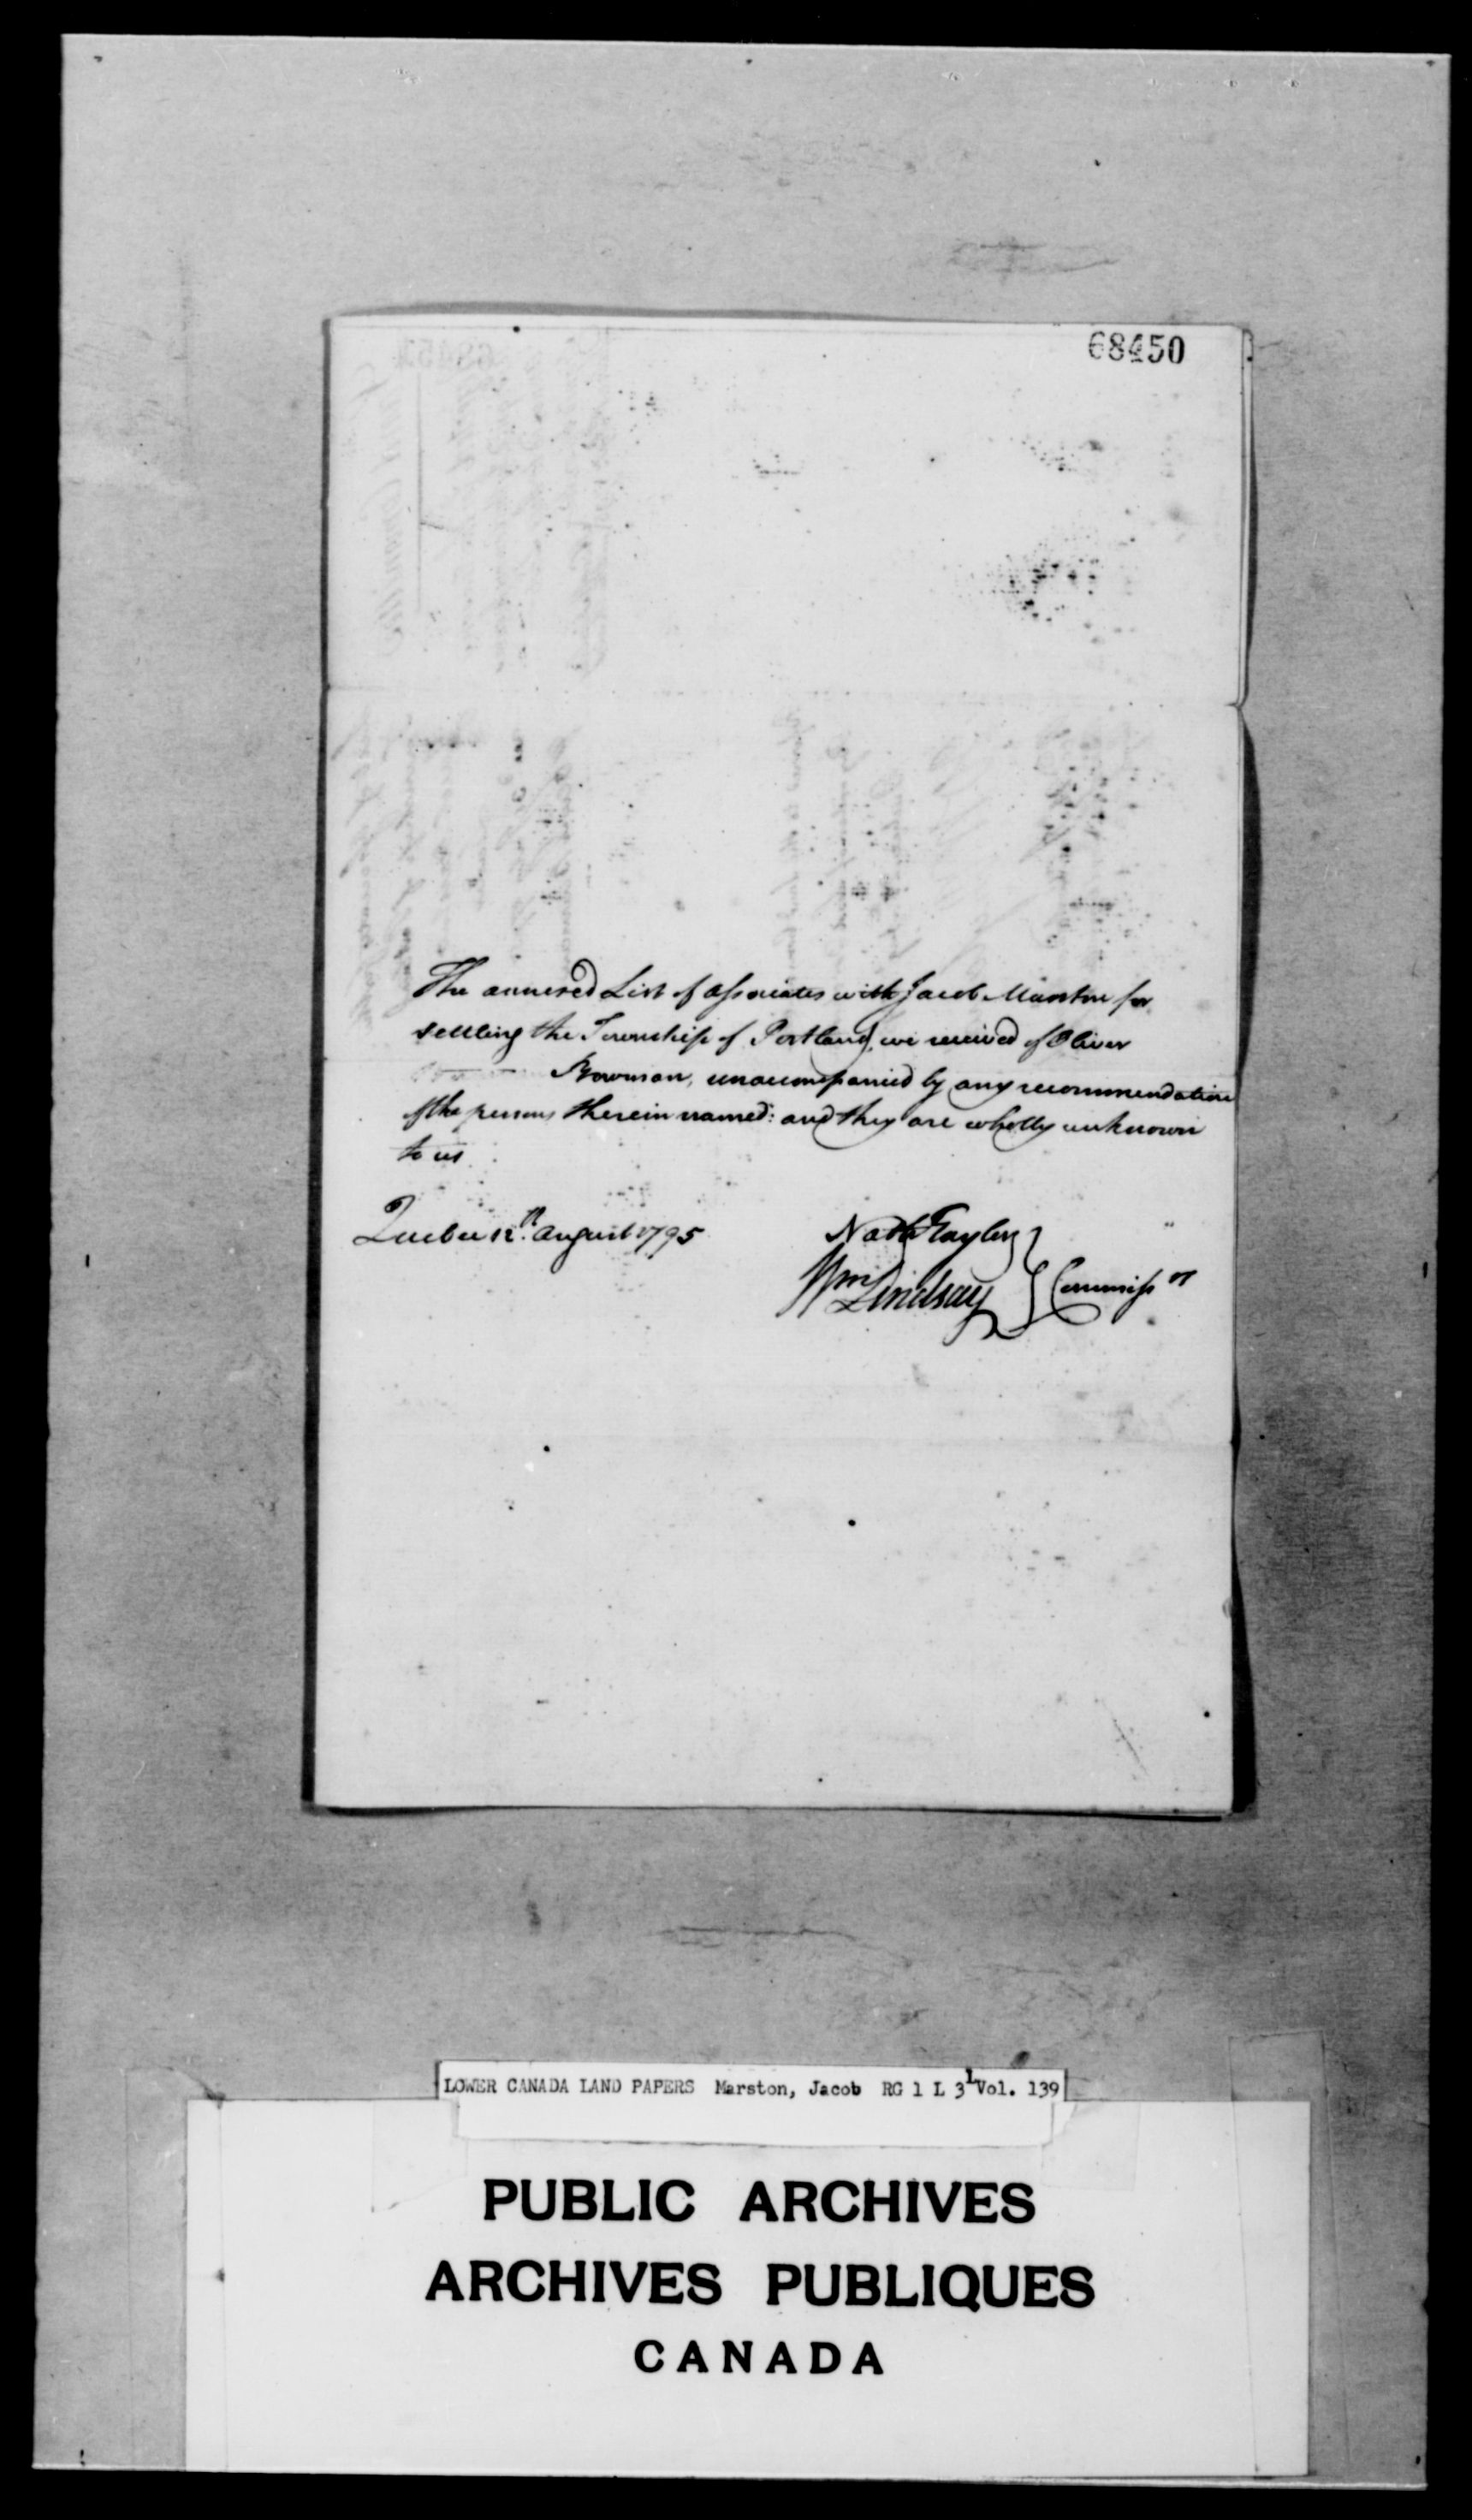 68450
The annexed List of Associates with Jacob Marston for
settling the Township of Portland, we received of Oliver
Bowman, unaccompanied by any recommendation
of the persons therein named: and they are wholly unknown
to us
Quebec 12th August 1795
Nath Taylor
Wm Lindsay } Commissrs
LOWER CANADA LAND PAPERS Marston, Jacob RG 1 L 3L Vol. 139
PUBLIC ARCHIVES
ARCHIVES PUBLIQUES
CANADA